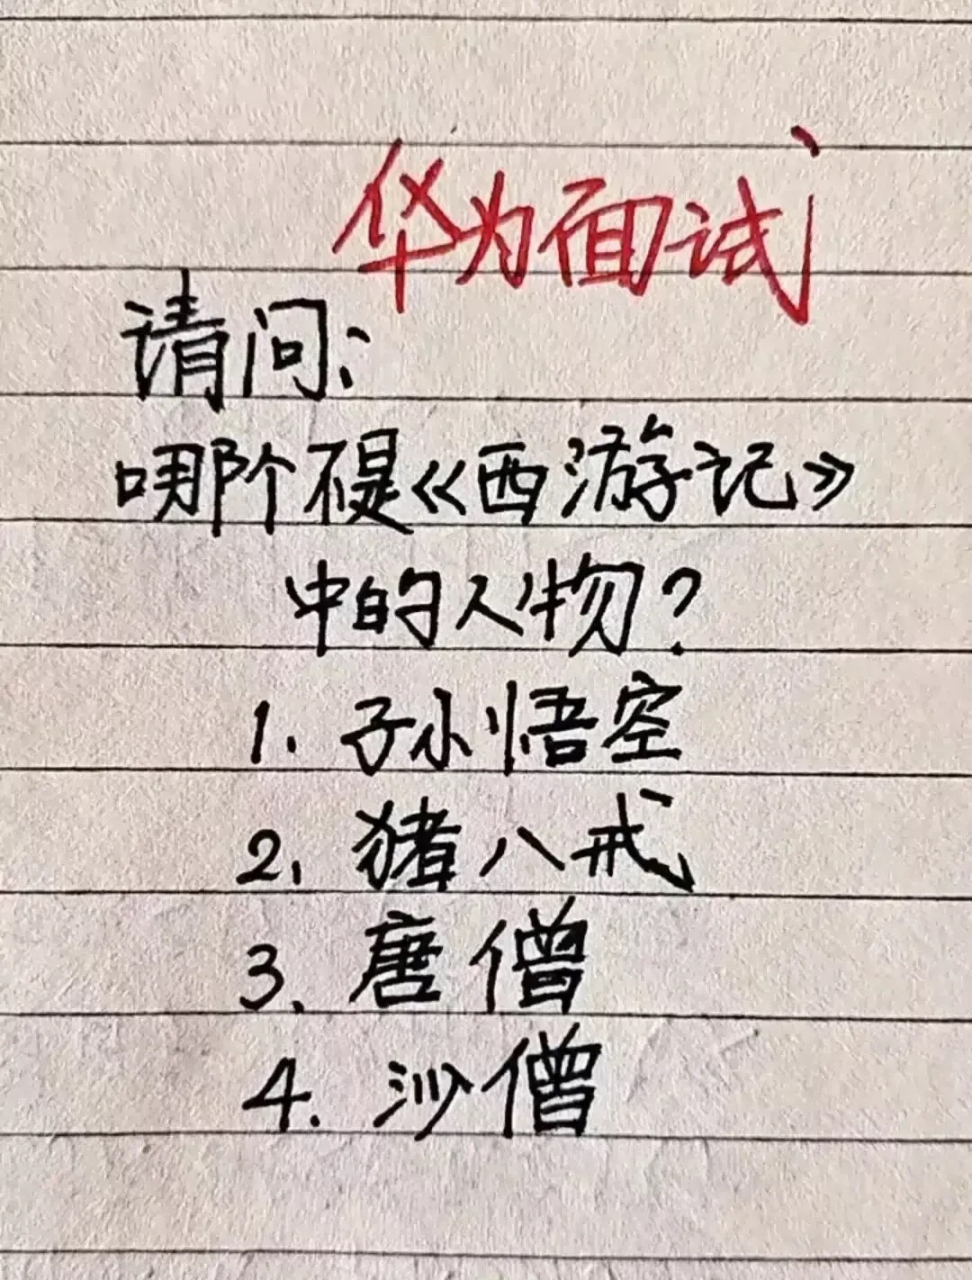 华为面试
请问:
哪个不是《西游记》
中的人物?
1. 孙悟空
2. 猪八戒
3. 唐僧
4. 沙僧